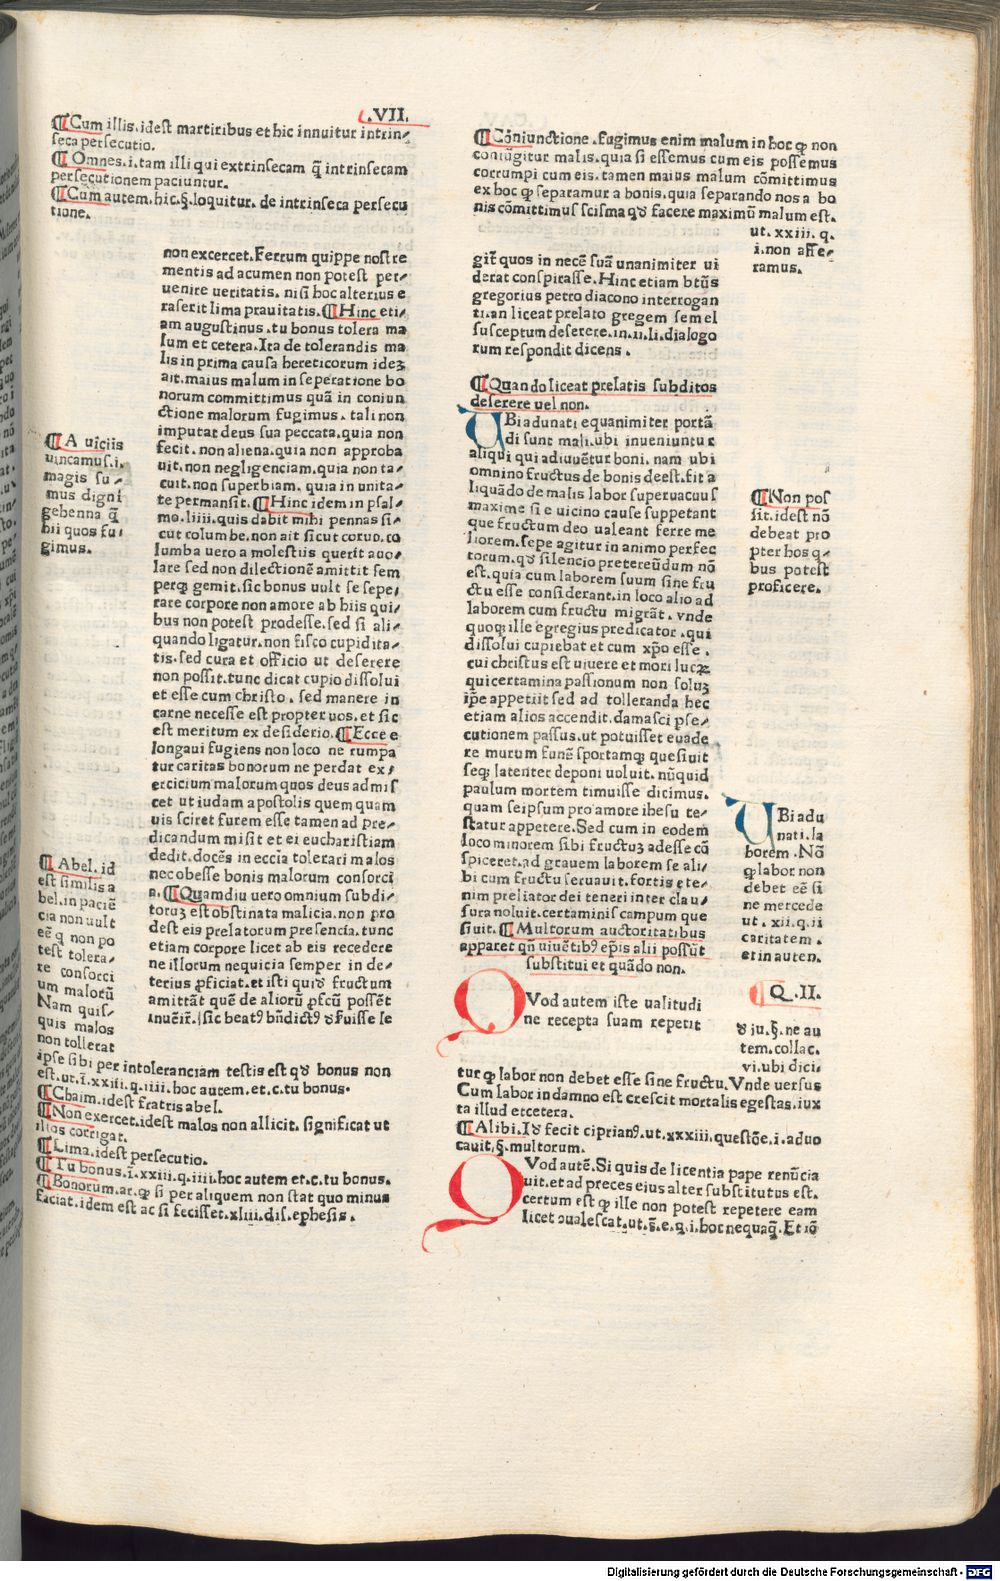 .VII.
¶ Cum illis.idest martiribus et hic innuitur intrin⸗
seca persecutio.
¶ Omnes.i.tam illi qui extrinsecam q̄ intrinsecam
persecutionem paciuntur.
¶ Cum autem.hic.§.loquitur.de intrinseca persecu
tione.
non excercet.Ferrum quippe nostre
mentis ad acumen non potest per⸗
uenire ueritatis.nisi hoc alterius e
raserit lima prauitatis.¶ Hinc eti⸗
am augustinus.tu bonus tolera ma
lum et cetera.Ita de tolerandis ma
lis in prima causa hereticorum ideʒ
ait.maius malum in seperatione bo
norum committimus quā in coniun
ctione malorum fugimus.tali non
imputat deus sua peccata.quia non
fecit.non aliena.quia non approba
uit.non negligenciam.quia non ta⸗
cuit.non superbiam.quia in unita⸗
te permansit.¶ Hinc idem in psal⸗
mo.liiii.quis dabit mihi pennas si⸗
cut columbe.non ait sicut coruo.co
lumba uero a molestiis querit auo⸗
lare sed non dilectionē amittit sem
perqꝫ gemit.sic bonus uult se sepe⸗
rare corpore non amore ab hiis qui⸗
bus non potest prodesse.sed si ali⸗
quando ligatur.non fisco cupidita⸗
tis.sed cura et officio ut deserere
non possit.tunc dicat cupio dissolui
et esse cum christo.sed manere in
carne necesse est propter uos.et sic
est meritum ex desiderio.¶ Ecce e
longaui fugiens non loco ne rumpa
tur caritas bonorum ne perdat ex⸗
ercicium malorum quos deus admis
cet ut iudam apostolis quem quam
uis sciret furem esse tamen ad pre⸗
dicandum misit et ei eucharistiam
dedit.docēs in eccia tolerari malos
nec obesse bonis malorum consorci
a.¶ Quamdiu uero omnium subdi⸗
toruʒ est obstinata malicia.non pro
dest eis prelatorum presencia.tunc
etiam corpore licet ab eis recedere
ne illorum nequicia semper in de⸗
terius ꝓficiat.et isti quiđ fructum
amittāt quē de alioꝝ ꝓfcū possēt
inuēir̄.sic beatꝰ bn̄dictꝰ đfuisse le
¶ A uiciis
uincamus.i.
magis su⸗
mus digni
gehenna q̄
hii quos fu⸗
gimus.
¶ Abel.id
est similis a
bel.in paciē
cia non uult
eē q non po
test tolera⸗
re consorci
um malorū
Nam quis⸗
quis malos
non tollerat
ipse sibi per intoleranciam testis est qđ bonus non
est.ut.ī.xxiii.q.iiii.hoc autem.et.c.tu bonus·
¶ Chaim.idest fratris abel.
¶ Non exercet.idest malos non allicit.significat ut
illos corrigat.
¶ Lima.idest persecutio.
¶ Tu bonus.ī.xxiii.q.iiii.hoc autem et.c.tu bonus.
¶ Bonorum.ar.ꝙ si per aliquem non stat quo minus
faciat.idem est ac si fecisset.xliii.dis.ephesis.
¶ Cōniunctione.fugimus enim malum in hoc ꝙ non
coniūgitur malis.quia si essemus cum eis possemus
corrumpi cum eis.tamen maius malum cōmittimus
ex hoc ꝙ separamur a bonis.quia separando nos a bo
nis cōmittimus scisma qđ facere maximū malum est.
ut.xxiii.q.
i.non affe⸗
ramus.
git̄ quos in necē suā unanimiter ui
derat conspirasse.Hinc etiam btūs
gregorius petro diacono interrogan
ti.an liceat prelato gregem semel
susceptum deserere.in.ii.li.dialogo
rum respondit dicens.
¶ Quando liceat prelatis subditos
deserere uel non.
UBi adunati equanimiter portā
di sunt mali.ubi inueniuntur
aliqui qui adiuuētur boni.nam ubi
omnino fructus de bonis deest.fit a
liquādo de malis labor superuacuus
maxime si e uicino cause suppetant
que fructum deo ualeant ferre me
liorem.sepe agitur in animo perfec
torum.qđ silencio pretereūdum nō
est.quia cum laborem suum sine fru
ctu esse considerant.in loco alio ad
laborem cum fructu migrāt.vnde
quoqꝫ ille egregius predicator.qui
dissolui cupiebat et cum xp̄o esse.
cui christus est uiuere et mori lucꝝ
qui certamina passionum non soluʒ
ip̄e appetiit sed ad tolleranda hec
etiam alios accendit.damasci pse⸗
cutionem passus.ut potuisset euade
re murum funē sportamqꝫ quesiuit
seqꝫ latenter deponi uoluit.nūquid
paulum mortem timuisse dicimus.
quam seipsum pro amore ihesu te⸗
statur appetere.Sed cum in eodem
loco minorem sibi fructuʒ adesse cō
spiceret.ad grauem laborem se ali⸗
bi cum fructu seruauit.fortis ete⸗
nim preliator dei teneri inter clau⸗
sura noluit.certaminis campum que
siuit.¶ Multorum auctoritatibus
apparet qn̄ uiuētibꝰ ep̄is alii possūt
substitui et quādo non.
QVod autem iste ualitudi
ne recepta suam repetit
¶ Non pos
sit.idest nō
debeat pro
pter hos q⸗
bus potest
proficere.
UBi adu
nati.la
borem.Nō
ꝙ labor non
debet eē si
ne mercede
ut.xii.q.ii
caritatem.
et in auten.
¶ Q.II.
đ iu.§.ne au
tem.collac.
vi.ubi dici⸗
tur ꝙ labor non debet esse sine fructu.Vnde uersus
Cum labor in damno est crescit mortalis egestas.iux
ta illud etcetera.
¶ Alibi.Iđ fecit ciprianꝰ.ut.xxxiii.questōe.i.aduo
cauit.§.multorum.
QVod autē.Si quis de licentia pape renūcia
uit.et ad preces eius alter substitutus est.
certum est ꝙ ille non potest repetere eam
licet conualescat.ut.s̄.e.q.i.hoc nequaq̄.Et iō
Digitalisierung gefördert durch die Deutsche Forschungsgemeinschaft - DFG